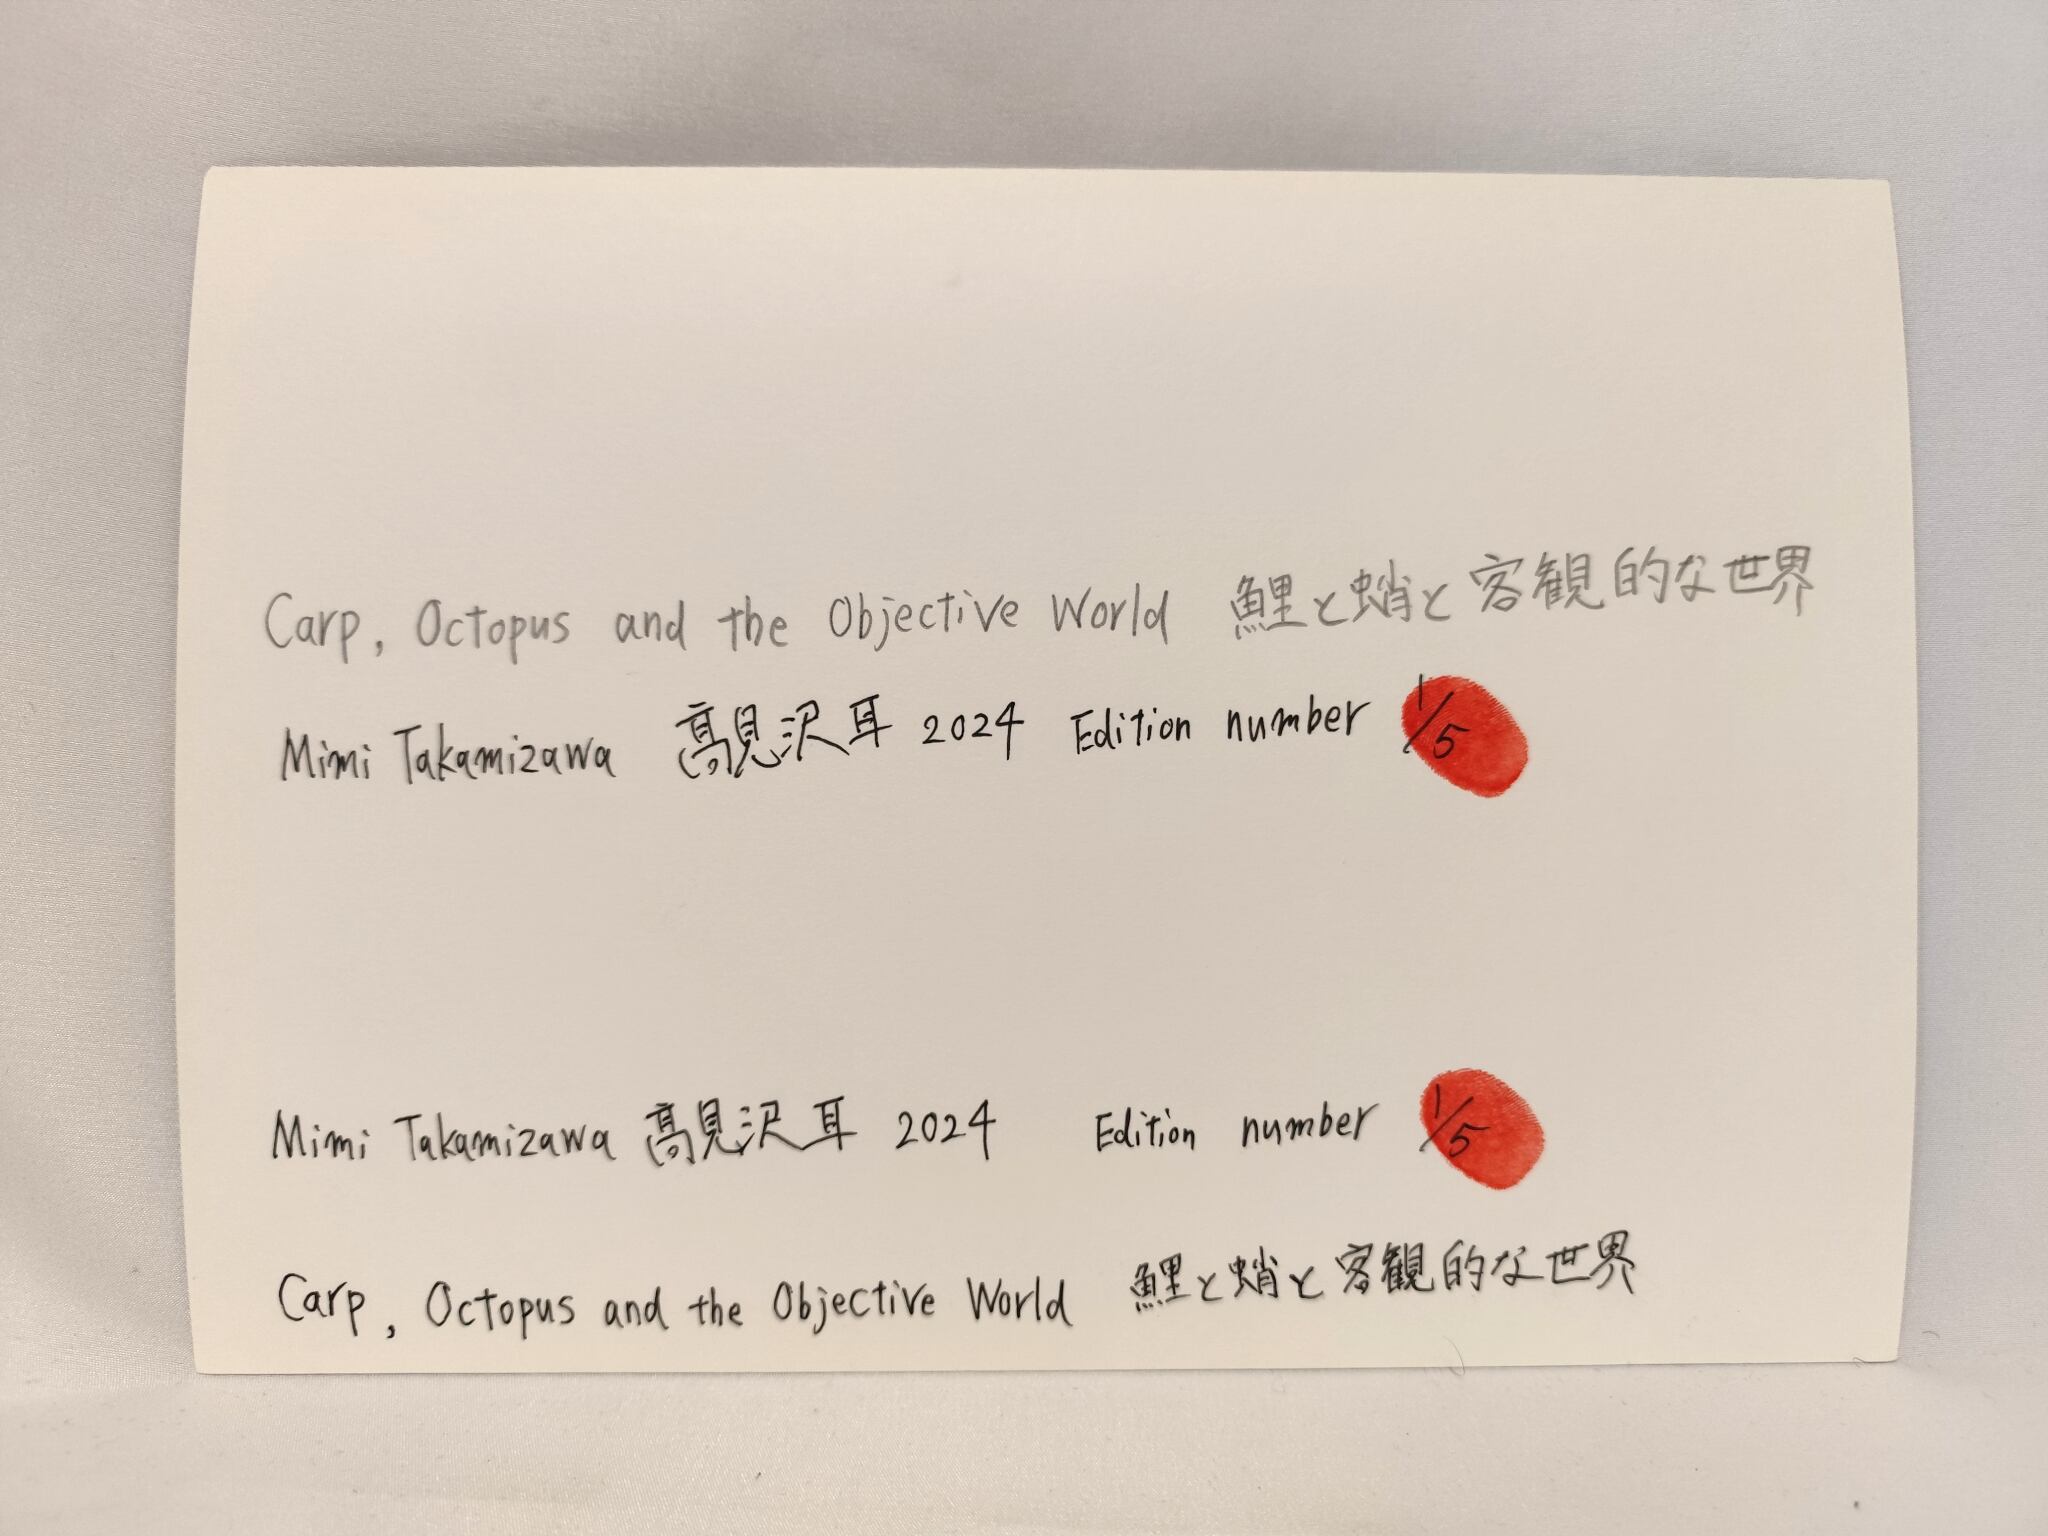 Carp, Octopus and the Objective World 鯉と蛸と客観的な世界
Mimi Takamizawa 高見沢耳 2024 Edition number 1/5
Mimi Takamizawa 高見沢耳 2024 Edition number 1/5
Carp, Octopus and the Objective World 鯉と蛸と客観的な世界